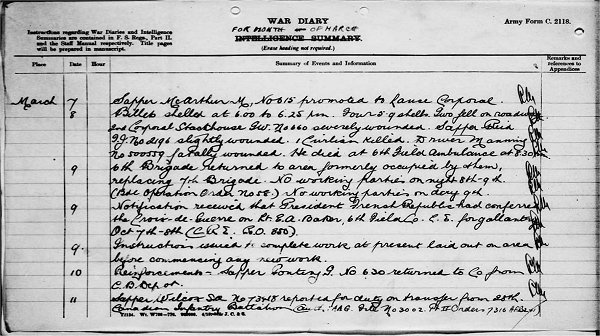 WAR DIARY
Army Form C. 2118.
FOR MONTH OF MARCH
INTELLIGENCE SUMMARY.
(Erase heading not required.)
Instructions regarding War Diaries and Intelligence
Summaries are contained in F. S. Regs., Part II.
and the Staff Manual respectively. Title pages
will be prepared in manuscript.
Place Date Hour Summary of Events and Information Remarks and references to Appendices
March 7 Sapper McArthur, No 615 promoted to Lance Corporal.
8 Billets shelled at 6.00 to 6.25 pm. Four 5.9 shells. Two fell on roadway
2nd Corporal GW. No 660 severely wounded. Sapper Reid
No slightly wounded. 1 Civilian killed. Driver Manning
No fatally wounded. He died at 6th Field Ambulance at 8.30
9 6th Brigade returned to area formerly occupied by them,
replacing 7th Brigade. No working parties on night 8th-9th
(Bde Operation Order No 58.) No working parties on day 9th.
9 Notification received that President French Republic had conferred
the Croix-de-Guerre on Lt. E.A. Baker, 6th Field Co. C.E. for gallantry
Oct 7th-8th (C.R.E. R.O. 880).
9 Instructions issued to complete work at present laid out on area
before commencing any new work.
10 Reinforcements - Sapper Ponting No 630 returned to Co from
C.B. Depot.
11 Sapper Wilcox No 73418 reported for duty on transfer from 28th
Canadian Infantry Battalion